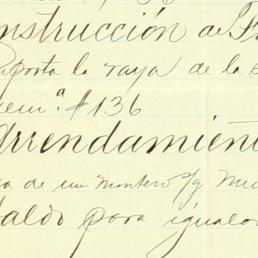 nstrucción de
aporta la raya de la
em.ª #136
arrendamient
a de un montero s/g
aldo para iguala